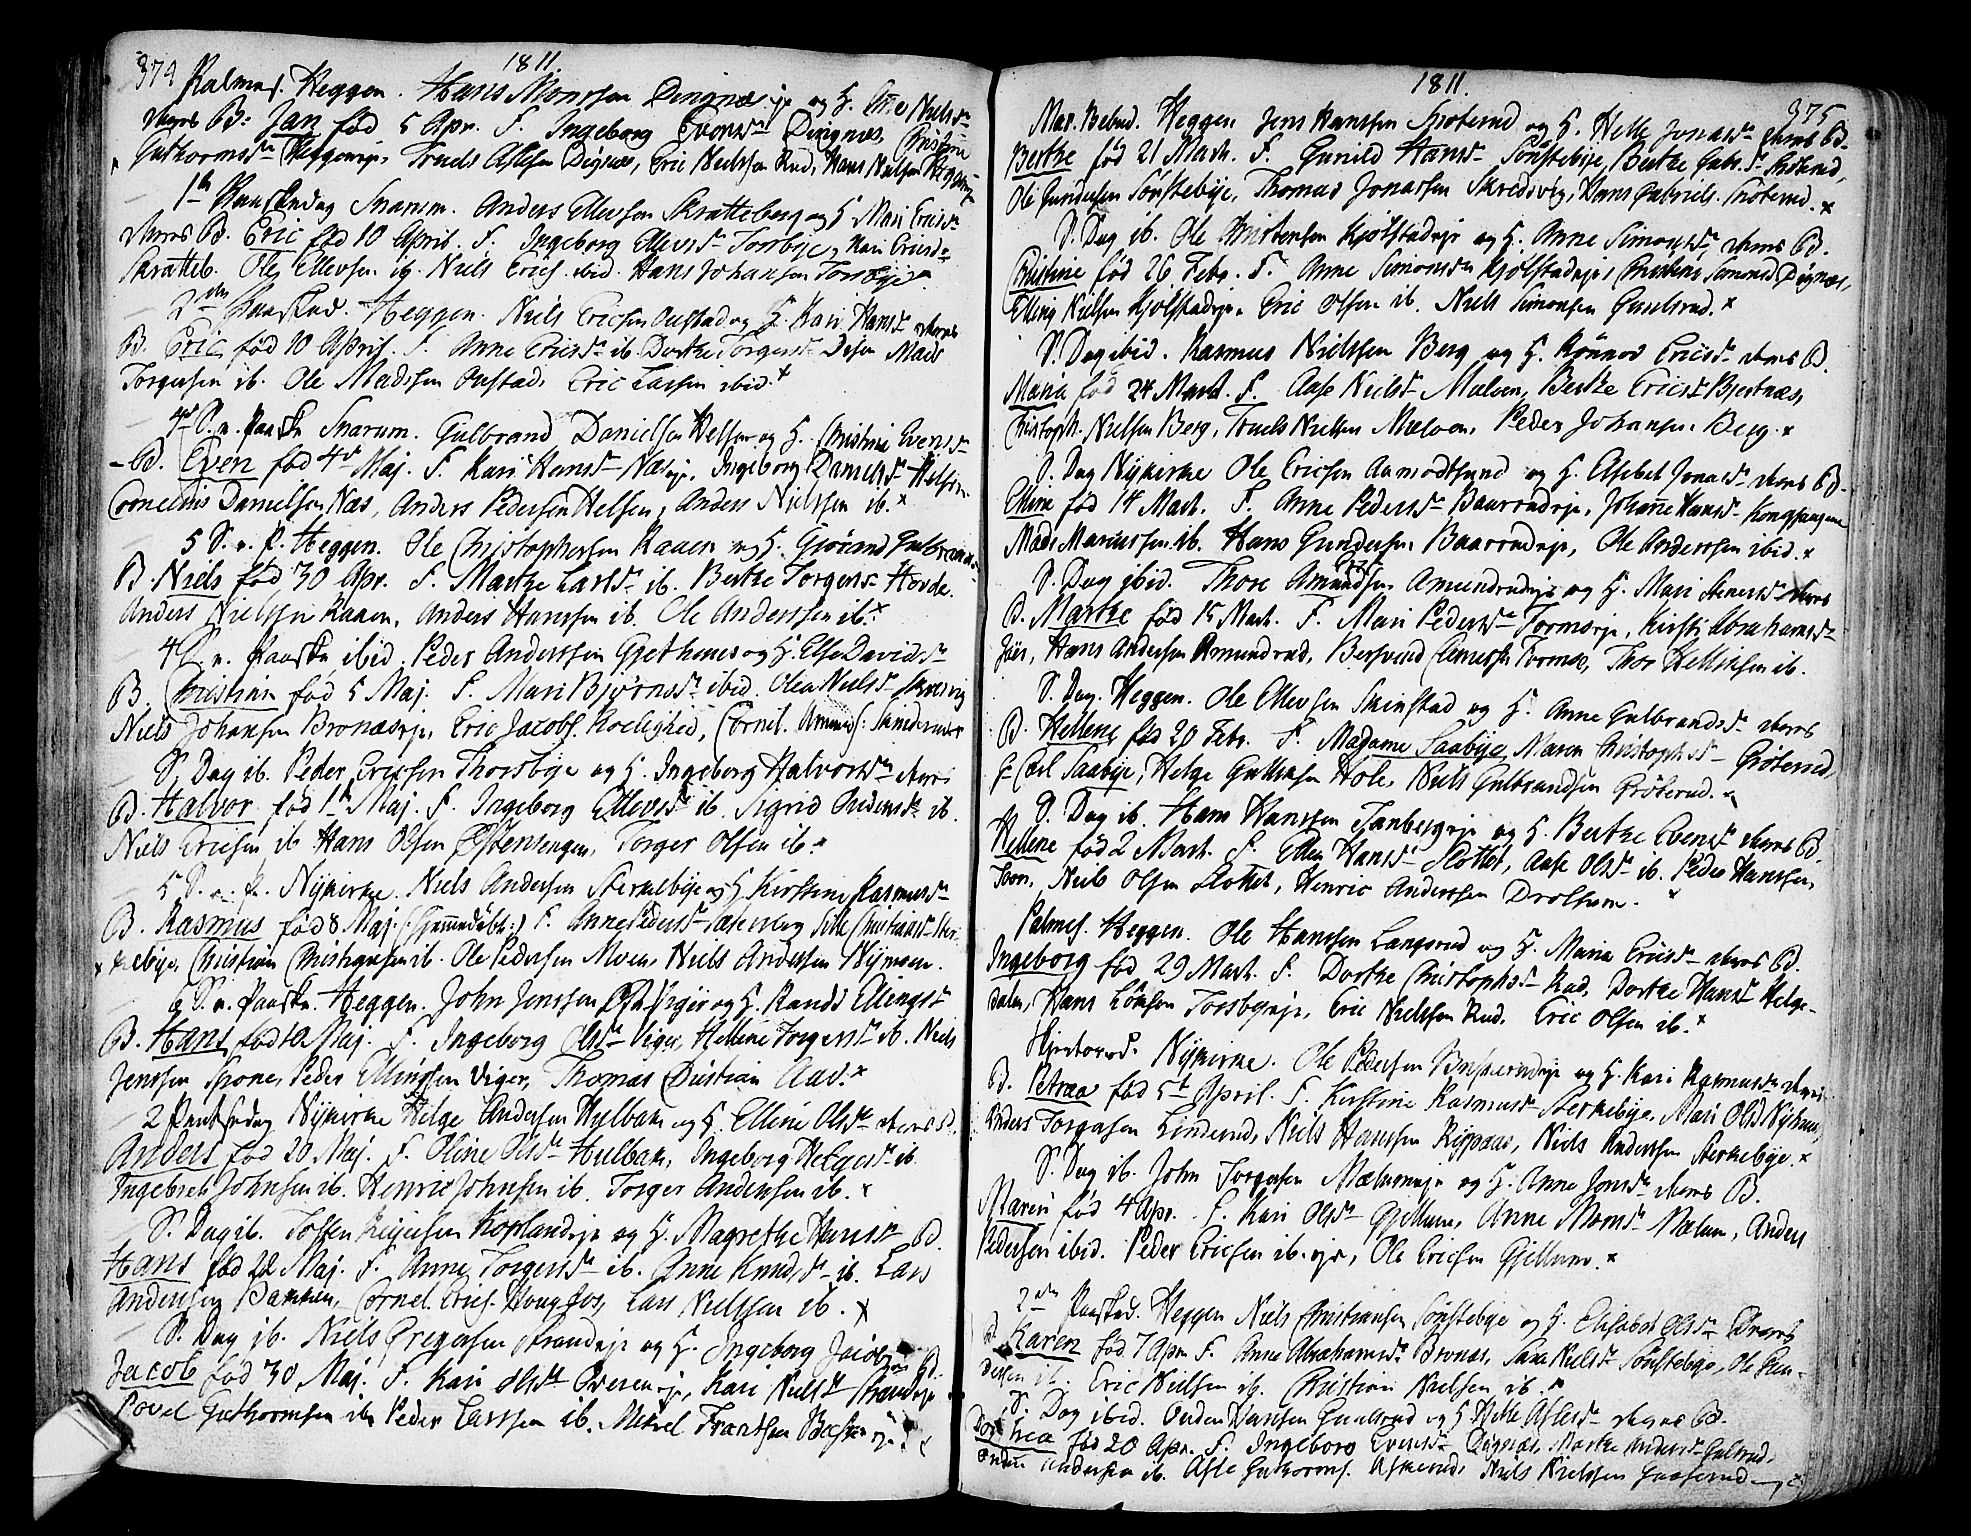 374
1811.
Palmes. Heggen. Hans Monssen Dingnæseje og H. Ane Nielsdr
deres B: Jan fød 5 Apr. F. Ingeborg Dingnæs, Christine
Guthormsdr Heggeneje, Truels Aslesen Dignæs, Eric Nielssen Rud, Hans Nielsen Heggen
1te Paaskedag Snarum. Anders Ellevsen Skratteberg og H Mari Ericsdr
deres B. Eric fød 10 April. F. Ingeborg Ellevsdr Torsbye, Kari Ericsdr
Skratteb. Ole Ellevsen ib. Niels Erics. ibid. Hans Johansen Torsbye
2den Paasked. Heggen. Niels Ericsen Oustad og H. Kari Hansdr deres
B. Eric fød 10 April. F. Anne Ericsdr ib. Dorthe Torgersdr Mads
Torgersen ib. Ole Madssen Oustad, Eric Larsen ibid. x
4de S. e. Paaske Snarum. Gulbrand Danielsen Helsen og H. Christine Evensdr
B. Even fød 4de Maj. F. Kari Hansdr Næseje, Ingeborg Danielsdr Helsen
Cornelius Danielsen Næs, Anders Pedersen Helsen, Anders Nielssen ib. x
5 S. e. P. Heggen. Ole Christophersen Raaen og H. Gjørand Gulbrands
B. Niels fød 30 Apr. F. Marthe Larsdr ib. Berthe Torgersdr Hovde.
Anders Nielssen Raaen, Anders Hanssen ib. Ole Anderssen ib. x
4 S. e. Paaske ibid. Peder Anderssen Gjethuus og H. Else Davidsdr
B. Christian fød 5 Maj. F. Mari Bjørnsdr ibid. Olea Nielsdr
Niels Johansen Bronæseje, Eric Jacobs. Roelighed, Cornel. Amunds.
S. Dag ib. Peder Ericsen Thorsbye og H. Ingeborg Halvorsdr deres
B. Halvor fød 1te Maj. F. Ingeborg Ellevsdr ib. Sigrid ib.
Niels Ericsen ib Hans Olsen Østensengen, Torger Olsen ib. x
5 S. e. P. Nykirke. Niels Andersen Sterkebye og H Kirstine Rasmusdr
B. Rasmus fød 8 Maj. (Hjemmedøbt:) F. Anne Pedersdr Sille Christiansdr Ster-
x kebye, Christian Christiansen ib. Ole Pedersen Moen, Niels Andersen Nymoen.
6 S. e. Paaske. Heggen. John Jenssen Viger og H. Randi Ellingsdr
B. Hans fød 12 Maj. F. Ingeborg Olsdr Viger, Hellene Torgersdr ib. Niels
Jenssen Spone, Peder Ellingsen Viger, Thomas Christian Aas. x
2 Pintsedag Nykirke Helge Andersen Hulbak og H. Elline Olsdr deres B.
Anders fød 20 Maj. F. Oline Olsdr Hulbak, Ingeborg Helgesdr ib
Ingebret Johnsen ib. Henric Johnsen ib. Torger Andersen ib. x
S. Dag ib. Kopland eje og H. Magrethe Hansdr B.
Hans fød 22 Maj. F. Anne Torgersdr ib. Anne Knudsdr ib. Lars
Andersen Bakken, Cornel. Erics. Hougfos, Lars Nielssen ib. x
S. Dag ib. Niels Gregersen Strandeje og H. Ingeborg Jacobsdr B.
Jacob fød 30 Maj. F. Kari Olsdr Overeneje, Kari Nielsdr Strandeje
Povel Guthormsen ib. Peder Larssen ib. Mikkel Frantsen x
375
1811.
Mar. Bebud. Heggen Jens Hanssen Grøterud og H. Helle Jonasdr deres B.
Berthe fød 21 Mart. F. Gunild Hansdr Sønstebye, Berthe Gabr.dr
Ole Gundersen Sønstebye, Thomas Jonassen Skredsvig, Hans Gabriels. Grøterud. x
S. Dag ib. Ole Christensen Kjølstadeje og H. Anne Simonsdr deres B.
Christine fød 26 Febr. F. Anne Simonsdr Kjølstadeje, Christine Simonsdr Dignæs,
Elling Nielsen Kjølstadeje. Eric Olsen ib. Niels Simonsen Gunelsrud. x
S. Dag ibid. Rasmus Nielssen Berg og H. Rønnov Ericsdr deres B.
Maria fød 24 Mart. F. Aase Nielsdr Mælven, Berthe Ericsdr Bjertnæs,
Christoph. Nielsen Berg, Truels Nielsen Mælven, Peder Johansen Berg. x
S. Dag Nykirke Ole Ericsen Aamodtsund og H. Elsebet Jonasdr deres B.
Eline fød 14 Mart. F. Anne Pedersdr Baarrudeje, Johanne Hansdr
Mads Mariussen ib. Hans Gundersen Baarrudeje, Ole Anderssen ibid. x
S. Dag ibid. Thore Amundsen Amundrudeje og H. Mari Steners dr deres
B. Marthe fød 15 Mart. F. Mari Pedersdr Formoeje, Kirsti Abrahamsdr
Hans Andersen Amundrud, Bersvend Clemetsen Formoe, Thor Hellinsen ib.
S. Dag. Heggen. Ole Ellevsen Skinstad og H. Anne Gulbrandsdr deres
B. Hellene fød 20 Febr. F. Madame Saabye, Maren Christophsdr Grøterud,
Hr Carl Saabye, Helge Gulliksen Hole, Niels Gulbrandsen Grøterud.
S. Dag ib. Hans Hanssen Tanbergeje og H. Berthe Evensdr deres B.
Hellene fød 2 Mart. F. Ellen Hansdr Slottet, Aase Olsdr ib. Peder Hanssen
Niels Olsen Slottet, Henric Anderssen Drolsum. x
Palmes. Heggen. Ole Hanssen Langerud og H. Maria Ericsdr deres B.
Ingeborg fød 29 Mart. F. Dorthe Christophsdr Rud, Dorthe Hansdr Helge-
dalen, Hans Torsbyeje, Eric Nielssen Rud. Eric Olsen ib. x
Skjertorsd. Nykirke. Ole Pedersen Buskerudeje og H. Kari Rasmusdr deres
B. Petrea fød 5te April. F. Kirstine Rasmusdr Sterkebye, Mari Olsd Nyhuus,
Anders Torgersen Linderud, Niels Hanssen Rypaas, Niels Anderssen Sterkebye. x
S. Dag ib. John Torgersen Mælumeje og H. Anne Jonsdr deres B.
Maren fød 4 Apr. F. Kari Olsdr Gjellum, Anne Monsdr Mælum, Anders
Pedersen ibid. Peder Ericsen ib. eje, Ole Ericsen Gjellum. x
2den Paasked. Heggen Niels Christiansen Sønstebye og H. Elisabet Olsdr deres
B. Karen fød 7 Apr. F. Anne Abrahamsdr Bronæs, Sara Nielsdr Sønstebye, Ole Gun-
dersen ib. Eric Nielsen ib. Christian Nielsen ib. x
S. Dag ibid. Hansen Gunelsrud og H Helle Aslesdr deres B.
Dorthea fød 20 Apr. F. Ingeborg Evensdr Dignæs, Marthe Andersdr Gulsrud,
Andersen ib. Asle Guthorms. Askerud, Niels Nielssen Gaaserud